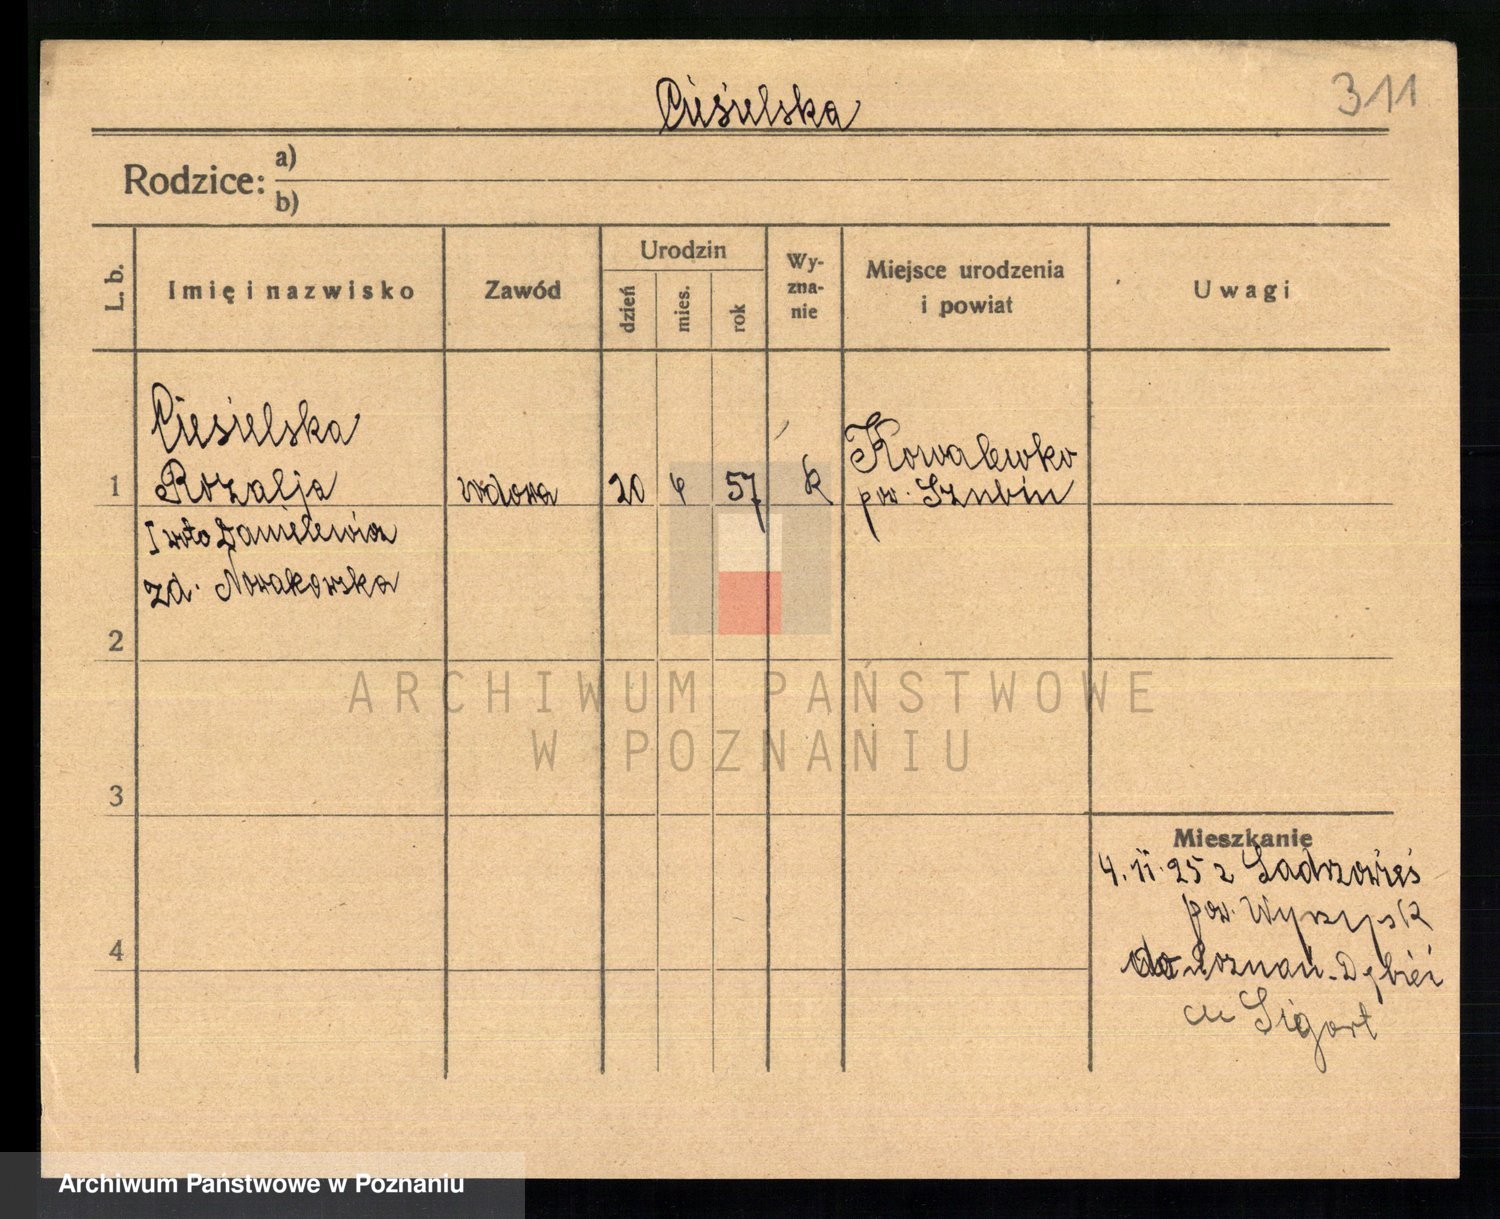 Cieśielska
311
Rodzice:
a)
b)
L. b.
Imię i nazwisko
Zawód
Urodzin
dzień
mies.
rok
Wy-
zna-
nie
Miejsce urodzenia
i powiat
Uwagi
Ciesielska
1 Rozalja wdowa 20 4 57 k Kowalewko
pow. Szubin
I voto Danielewicz
zd. Nowakowska
2
3
4
Mieszkanie
4.11.25 z
pow. Wyrzysk
do Poznań-Dębiec
ARCHIWUM PAŃSTWOWE
W POZNANIU
Archiwum Państwowe w Poznaniu